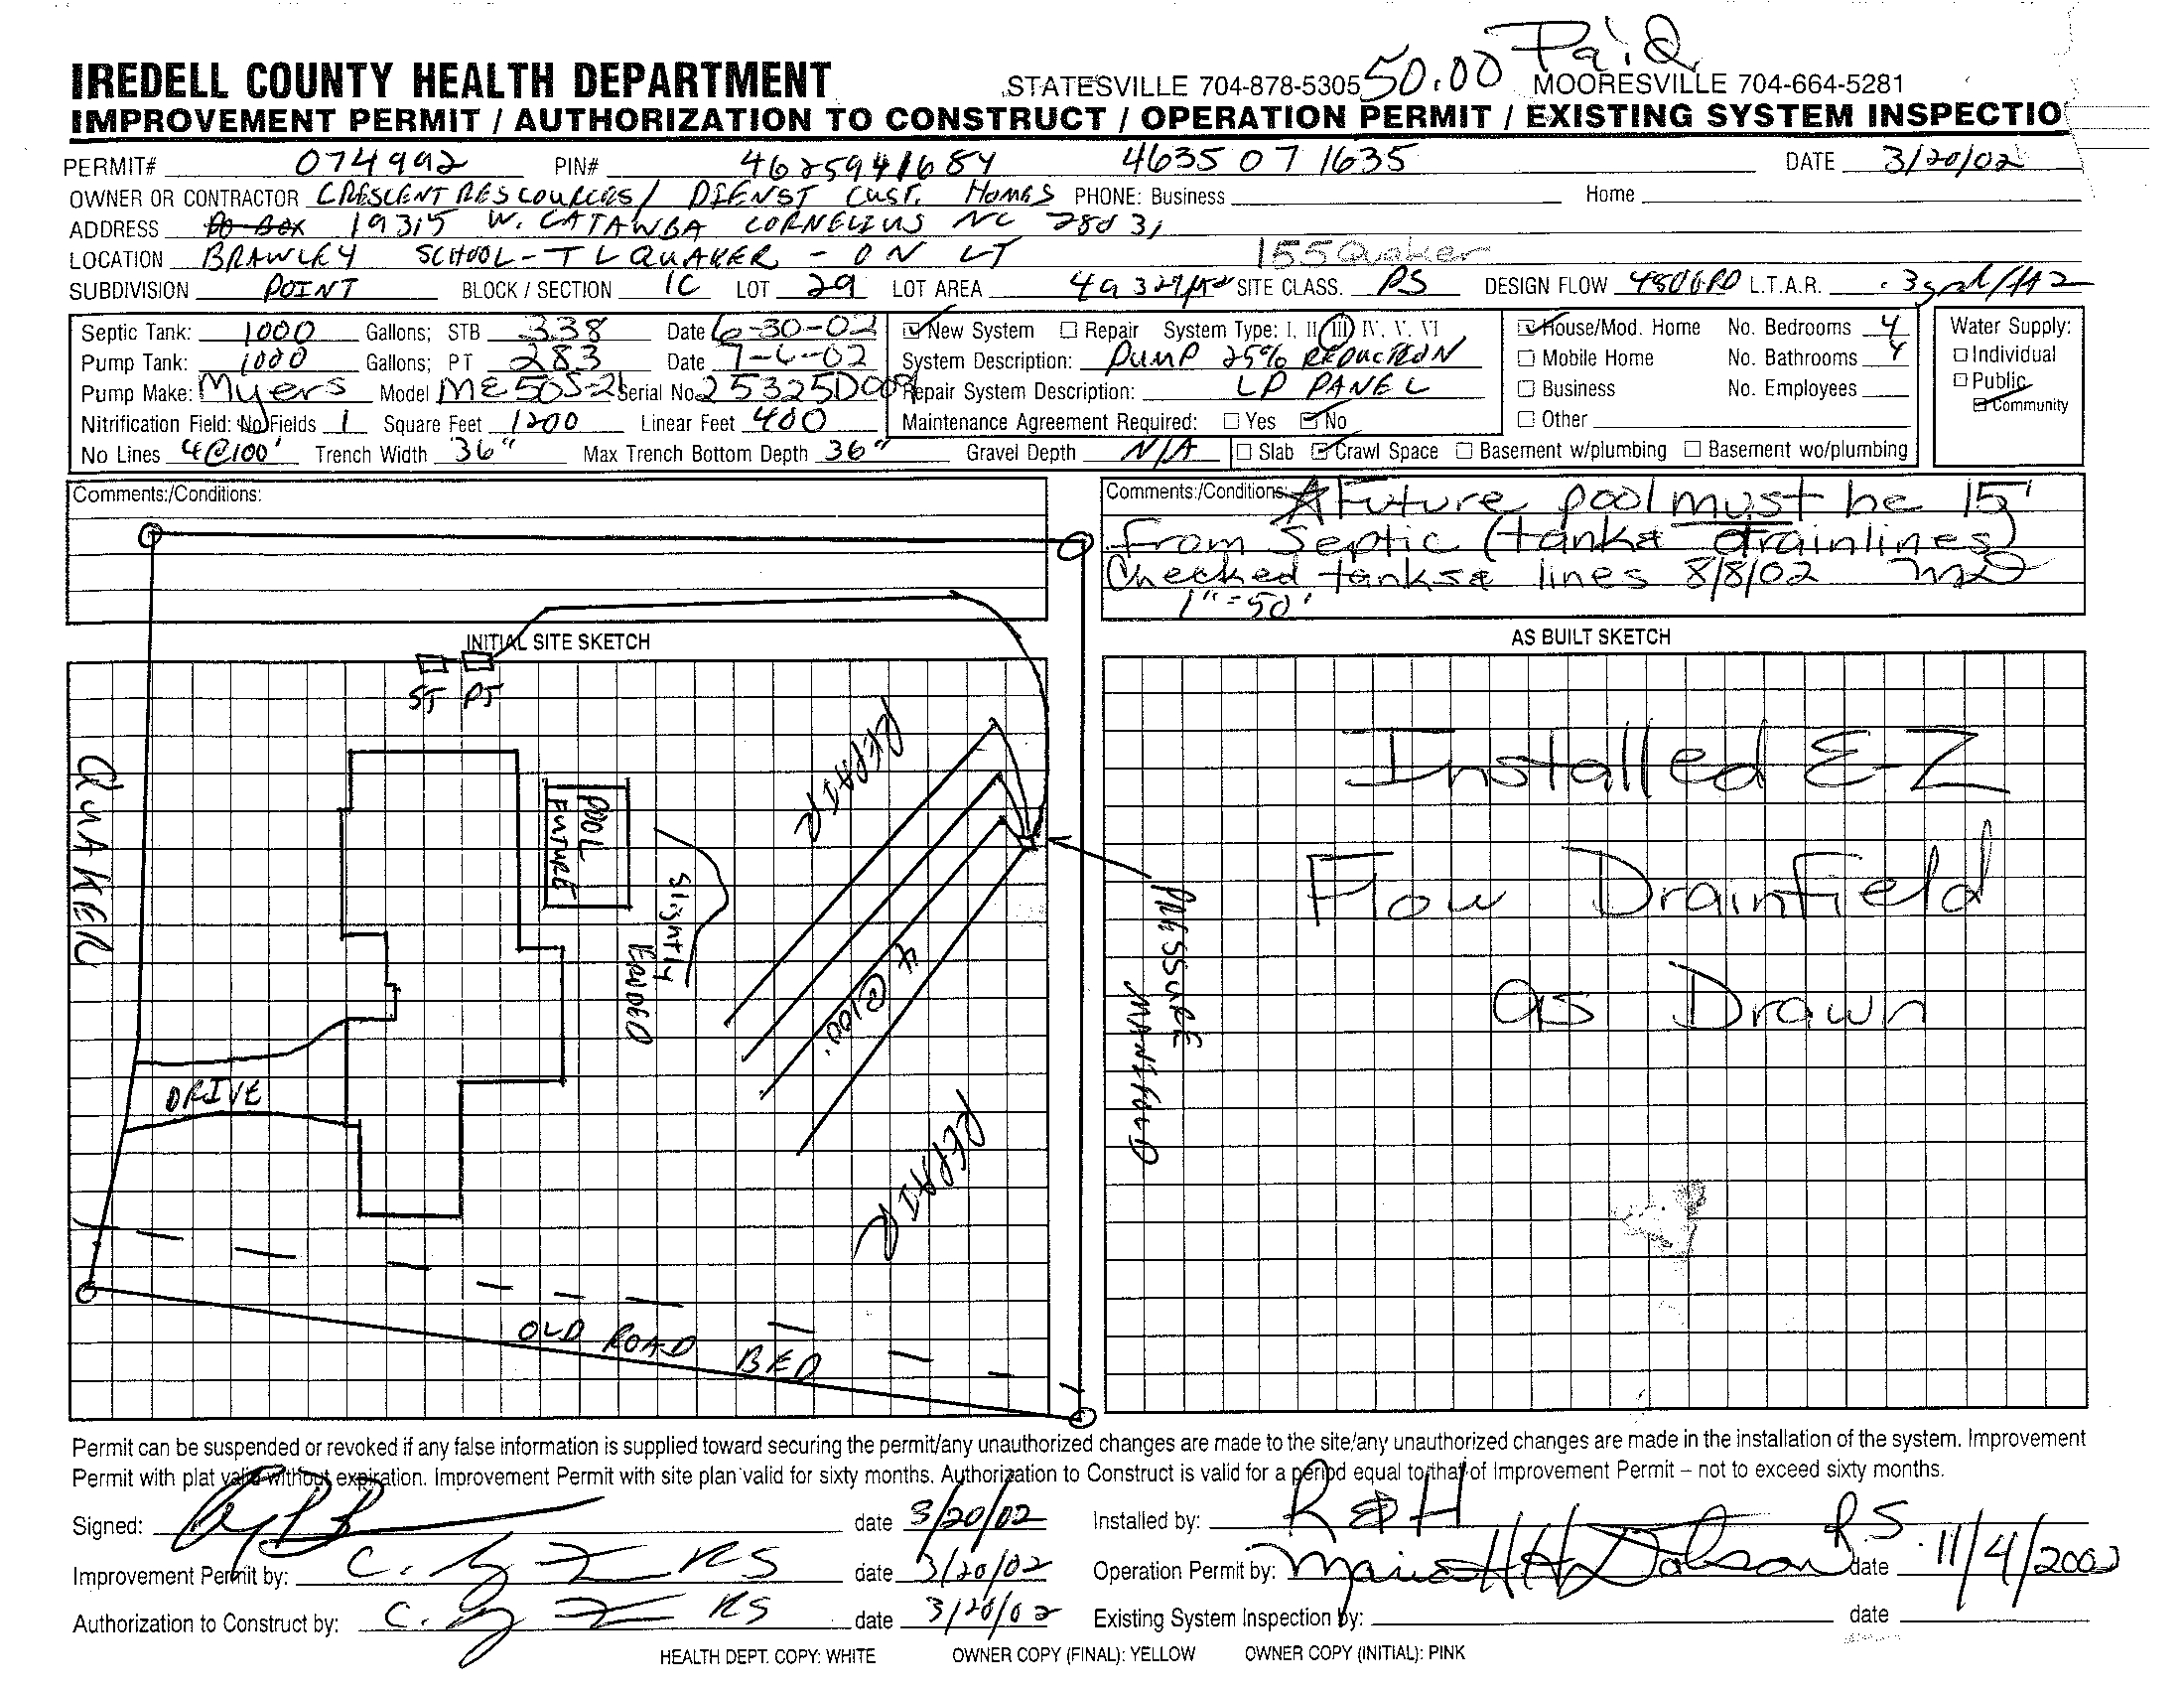 50.00 Paid
IREDELL COUNTY HEALTH DEPARTMENT STATESVILLE 704-878-5305 MOORESVILLE 704-664-5281
IMPROVEMENT PERMIT / AUTHORIZATION TO CONSTRUCT / OPERATION PERMIT / EXISTING SYSTEM INSPECTIO
PERMIT# 074992 PIN# 4625941684 4635 07 1635 DATE 3/20/02
OWNER OR CONTRACTOR CRESCENT RESCOURCES/ DIENST CUST. HOMES PHONE: Business Home
ADDRESS PO BOX 19315 W. CATAWBA CORNELIUS NC 28031
LOCATION BRAWLEY SCHOOL - T L QUAKER - ON LT 155 Quaker
SUBDIVISION POINT BLOCK / SECTION 1C LOT 29 LOT AREA SITE CLASS. PS DESIGN FLOW 480GPD L.T.A.R. .3gpd/ft2
Septic Tank: 1000 Gallons; STB 338 Date 6-30-02 New System Repair System Type: I, II, III, IV, V, VI House/Mod. Home No. Bedrooms 4 Water Supply:
Pump Tank: 1000 Gallons; PT 283 Date System Description: PUMP 25% REDUCTION Mobile Home No. Bathrooms 4 Individual
Pump Make: Myers Model ME50S-21 Serial No. Repair System Description: LP PANEL Business No. Employees Public
Nitrification Field: No Fields 1 Square Feet 1200 Linear Feet 400 Maintenance Agreement Required: Yes No Other Community
No Lines 4@100' Trench Width 36" Max Trench Bottom Depth 36" Gravel Depth N/A Slab Crawl Space Basement w/plumbing Basement wo/plumbing
Comments:/Conditions:
Comments:/Conditions: Future pool must be 15'
from septic (tank & drainlines)
Checked tanks & lines 8/8/02 MD
1"=50'
INITIAL SITE SKETCH
AS BUILT SKETCH
ST PT
QUAKER
POOL
FUTURE
SLIGHTLY
REPAIR
4@100'
PRESSURE
MANIFOLD
DRIVE
REPAIR
OLD ROAD BED
Installed E-Z
Flow Drainfield
as Drawn
Permit can be suspended or revoked if any false information is supplied toward securing the permit/any unauthorized changes are made to the site/any unauthorized changes are made in the installation of the system. Improvement
Permit with plat valid without expiration. Improvement Permit with site plan valid for sixty months. Authorization to Construct is valid for a period equal to that of Improvement Permit – not to exceed sixty months.
Signed: date 3/20/02 Installed by: R & H
Improvement Permit by: RS date 3/20/02 Operation Permit by: Dobson R.S. date 11/4/2002
Authorization to Construct by: RS date 3/20/02 Existing System Inspection by: date
HEALTH DEPT. COPY: WHITE OWNER COPY (FINAL): YELLOW OWNER COPY (INITIAL): PINK